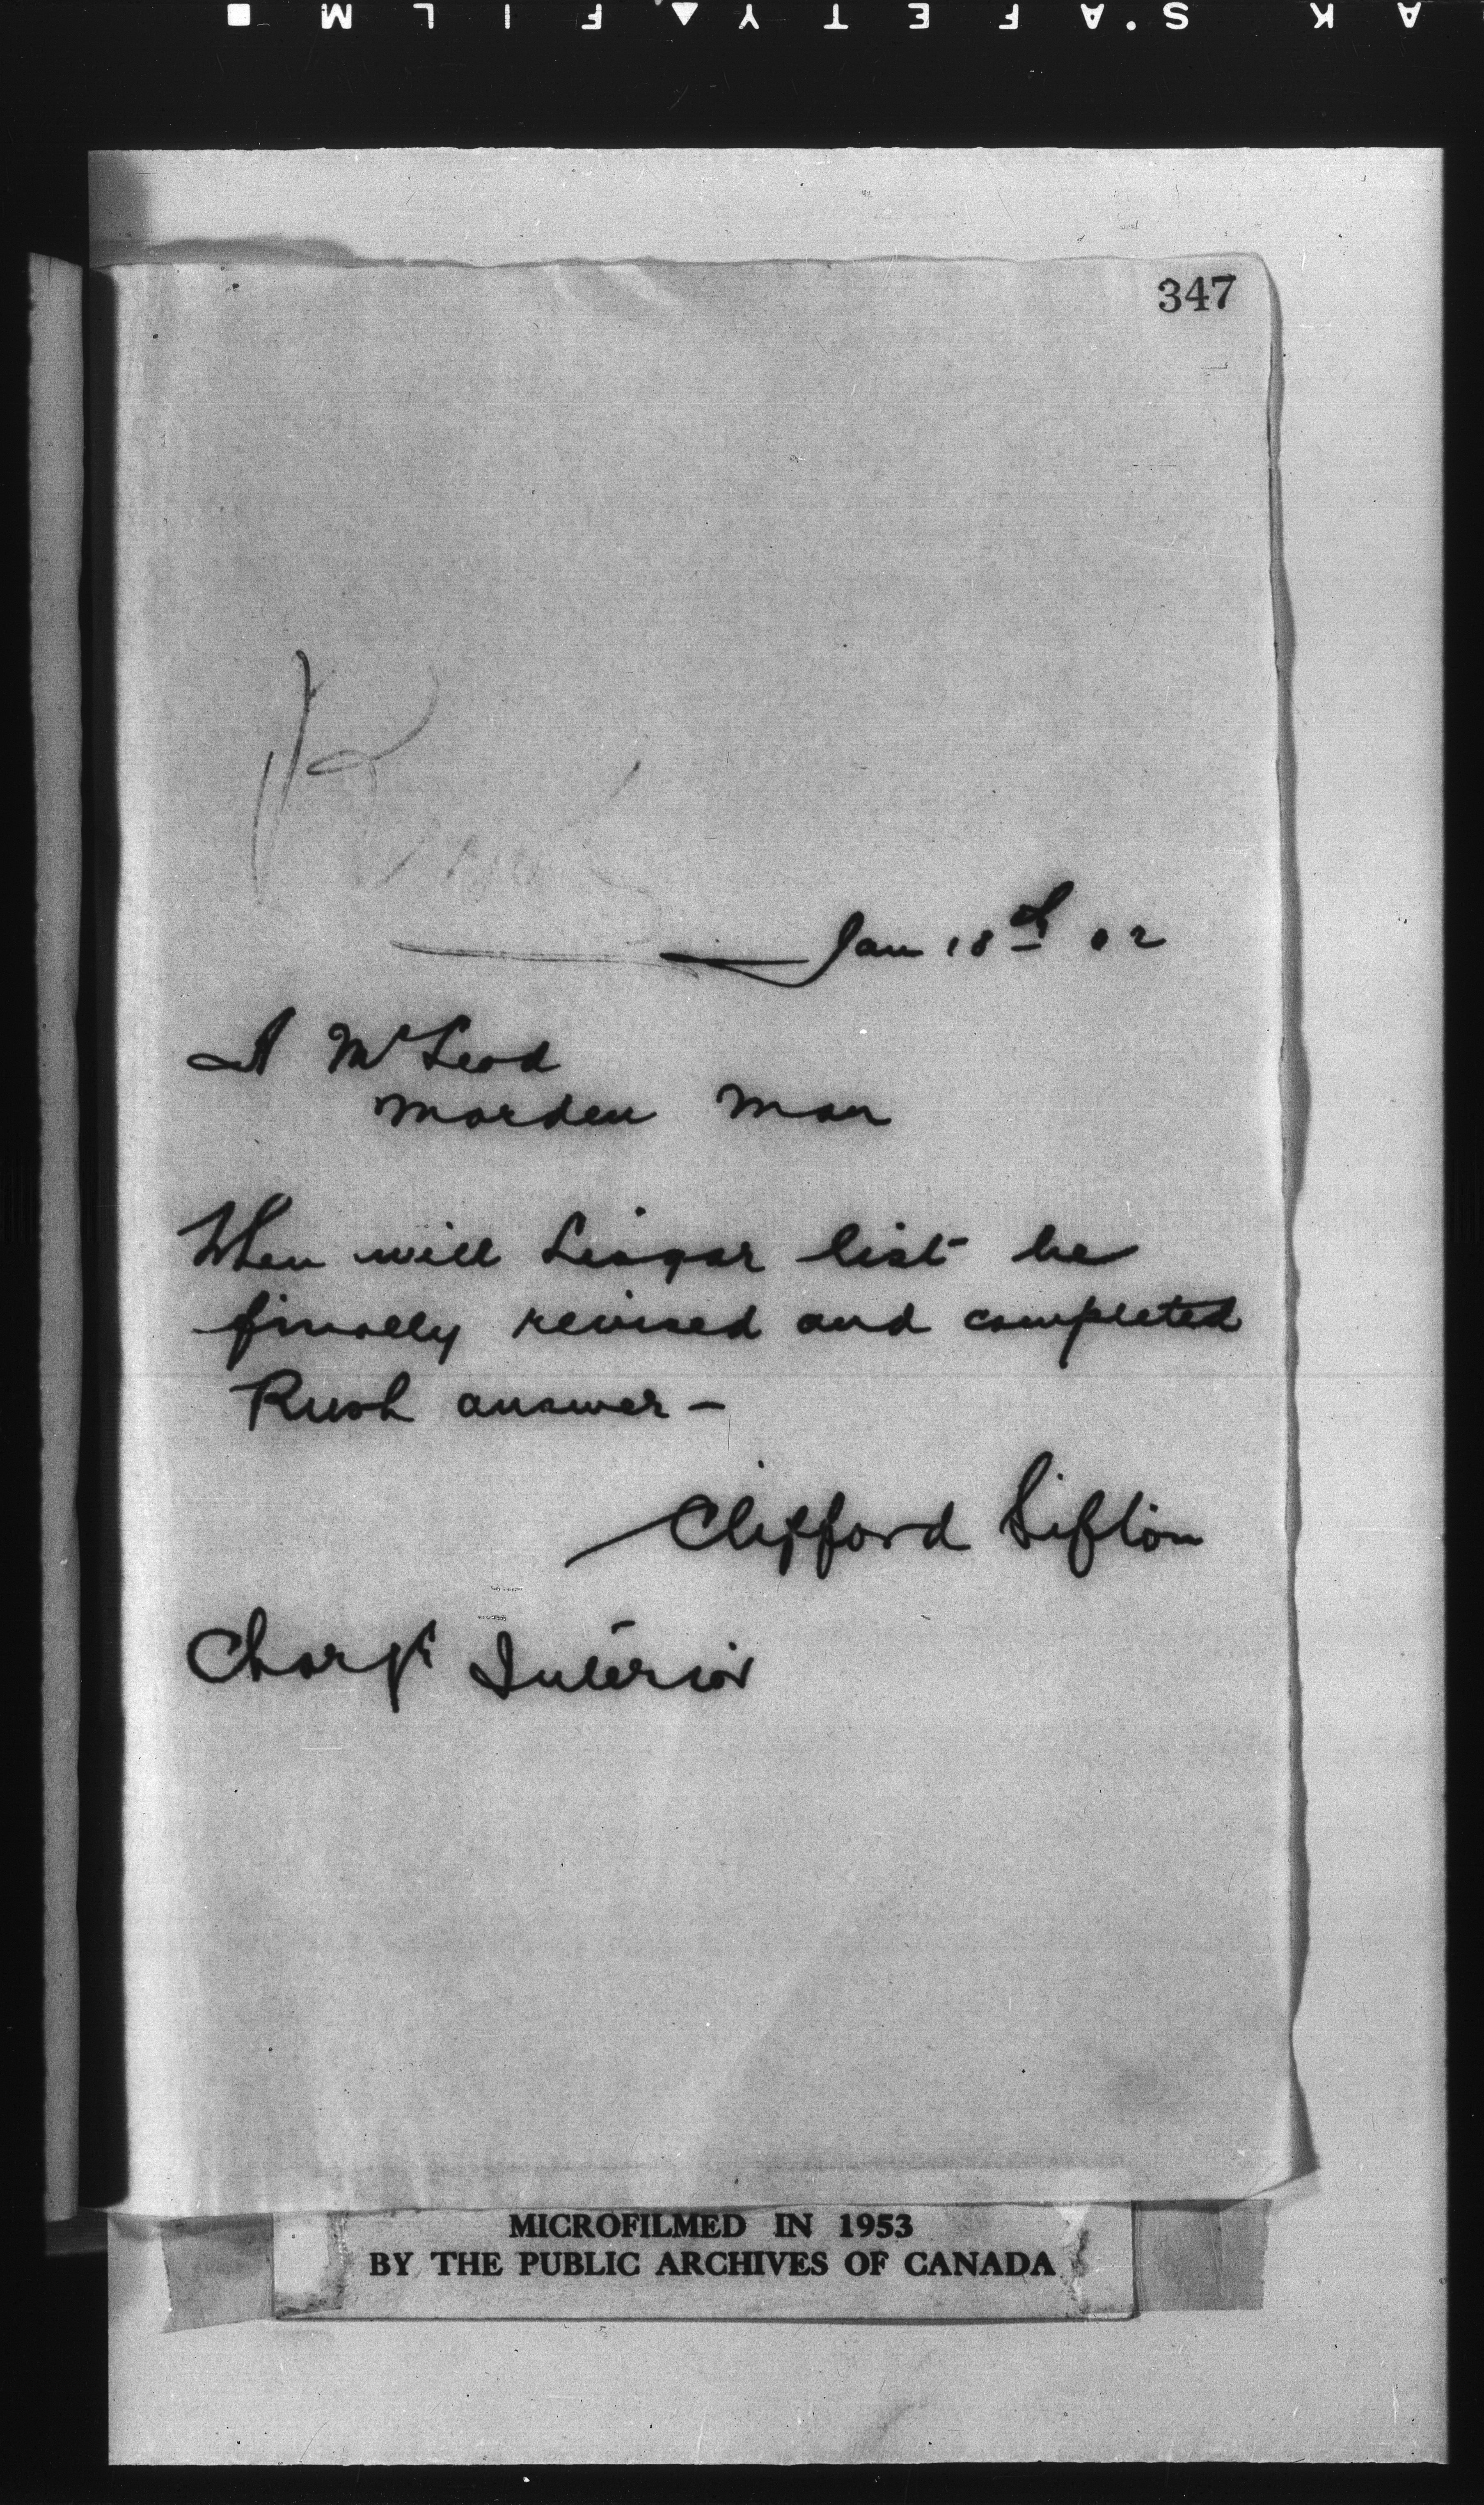 347
Jan 18th 02
A McLeod
Morden Man
When will Lisgar list be
finally revised and completed
Rush answer -
Clifford Sifton
Charge Interior
MICROFILMED IN 1953
BY THE PUBLIC ARCHIVES OF CANADA